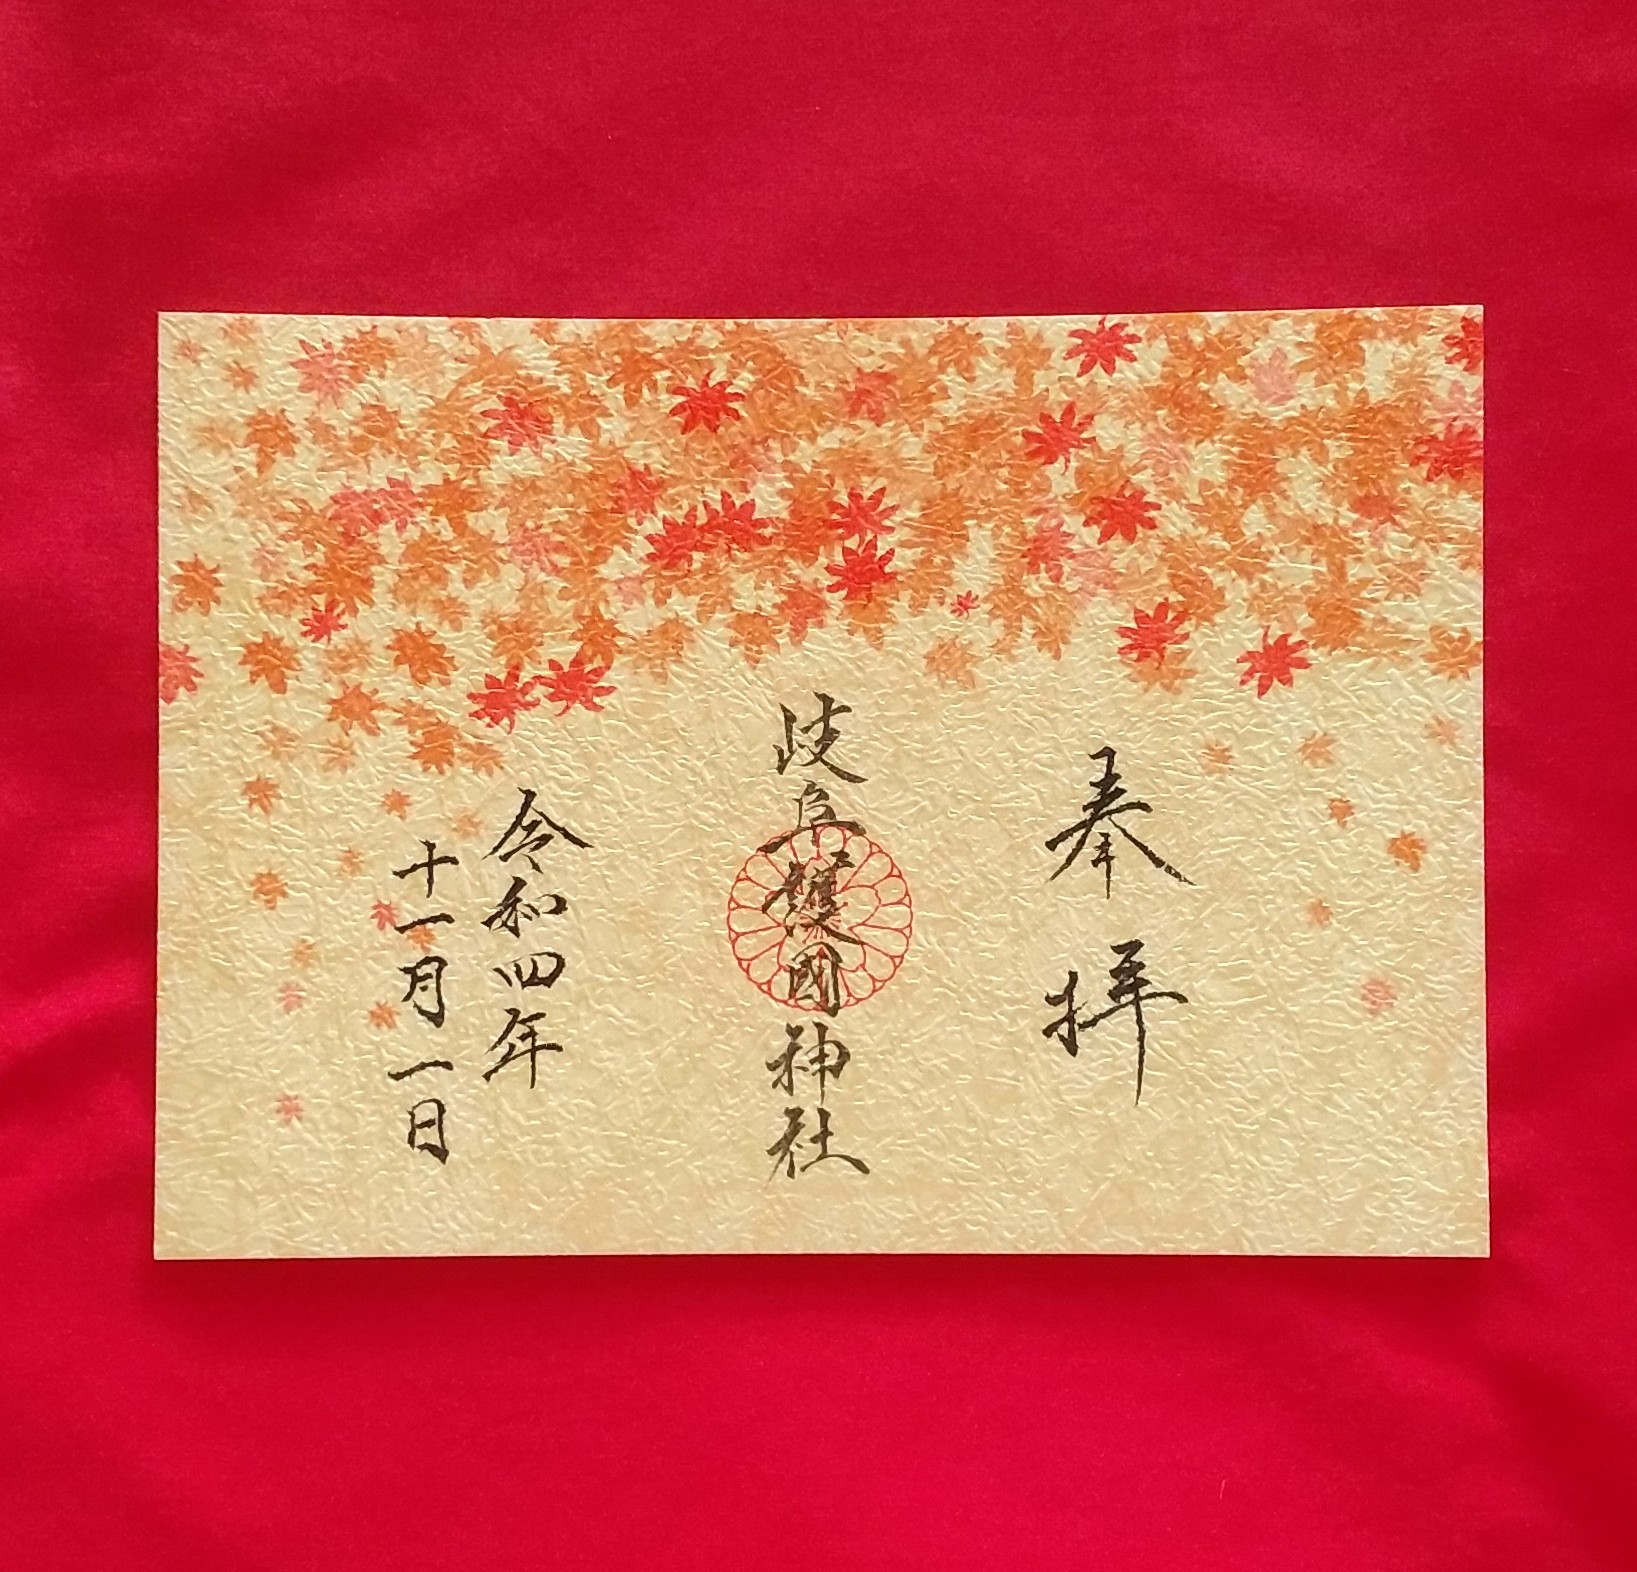 奉拝
岐阜護國神社
令和四年
十一月一日